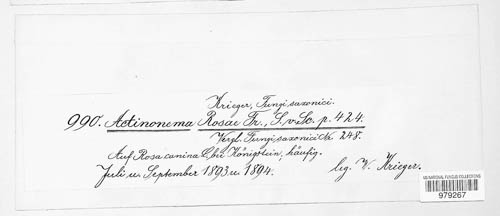 Krieger, Fungi saxonici.
990. Actinonema Rosae Fr., S. v. Sc. p. 424.
Vergl. Fungi saxonici Nr. 248.
Auf Rosa canina L. bei Königstein, häufig.
Juli u. September 1893 u. 1894.
leg. W. Krieger.
US NATIONAL FUNGUS COLLECTIONS
979267